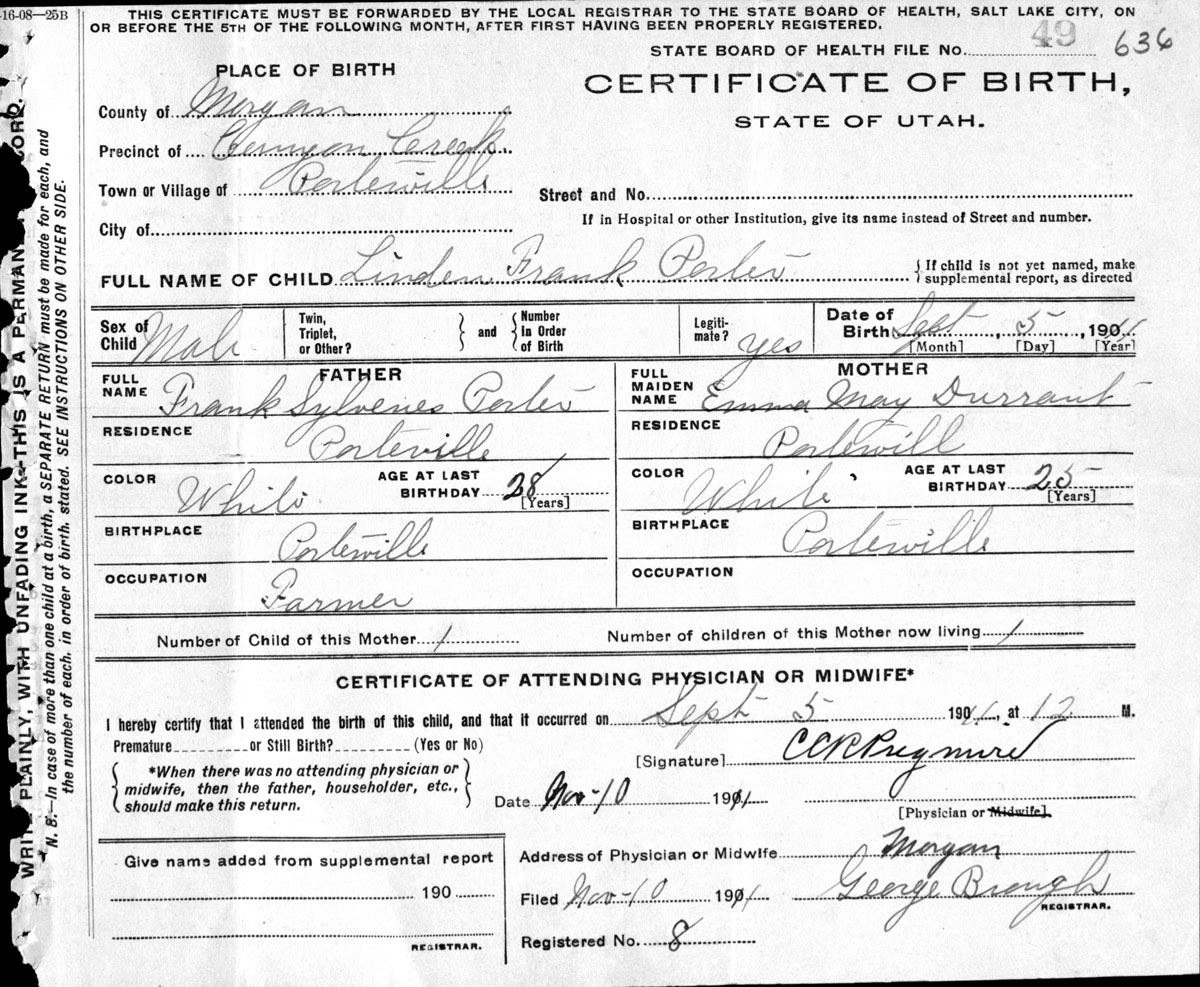 -16-08—25B
THIS CERTIFICATE MUST BE FORWARDED BY THE LOCAL REGISTRAR TO THE STATE BOARD OF HEALTH, SALT LAKE CITY, ON
OR BEFORE THE 5TH OF THE FOLLOWING MONTH, AFTER FIRST HAVING BEEN PROPERLY REGISTERED.
STATE BOARD OF HEALTH FILE NO. 49 636
PLACE OF BIRTH
CERTIFICATE OF BIRTH,
STATE OF UTAH.
County of Morgan
Precinct of Creek
Town or Village of Porterville
Street and No.
If in Hospital or other Institution, give its name instead of Street and number.
City of
FULL NAME OF CHILD Linden Frank Porter
If child is not yet named, make
supplemental report, as directed
Sex of Child Male
Twin, Triplet, or Other? and Number In Order of Birth
Legiti-mate? yes
Date of Birth Sept 5, 1911
[Month] [Day] [Year]
FATHER
FULL NAME Frank Porter
RESIDENCE Porteville
COLOR White
AGE AT LAST BIRTHDAY 28
[Years]
BIRTHPLACE Porteville
OCCUPATION Farmer
MOTHER
FULL MAIDEN NAME Emma May Durrant
RESIDENCE Portewill
COLOR White
AGE AT LAST BIRTHDAY 25
[Years]
BIRTHPLACE Porteville
OCCUPATION
Number of Child of this Mother 1
Number of children of this Mother now living 1
CERTIFICATE OF ATTENDING PHYSICIAN OR MIDWIFE*
I hereby certify that I attended the birth of this child, and that it occurred on Sept 5 1911, at 12 M.
Premature or Still Birth? (Yes or No)
[Signature]
*When there was no attending physician or
midwife, then the father, householder, etc.,
should make this return.
Date Nov-10 1911
[Physician or Midwife].
Give name added from supplemental report
190
REGISTRAR.
Address of Physician or Midwife Morgan
Filed Nov-10 1911 George Brough
REGISTRAR.
Registered No. 8
WRITE PLAINLY, WITH UNFADING INK—THIS IS A
N. B.—In case of more than one child at a birth, a SEPARATE RETURN must be made for each, and
the number of each, in order of birth, stated. SEE INSTRUCTIONS ON OTHER SIDE.